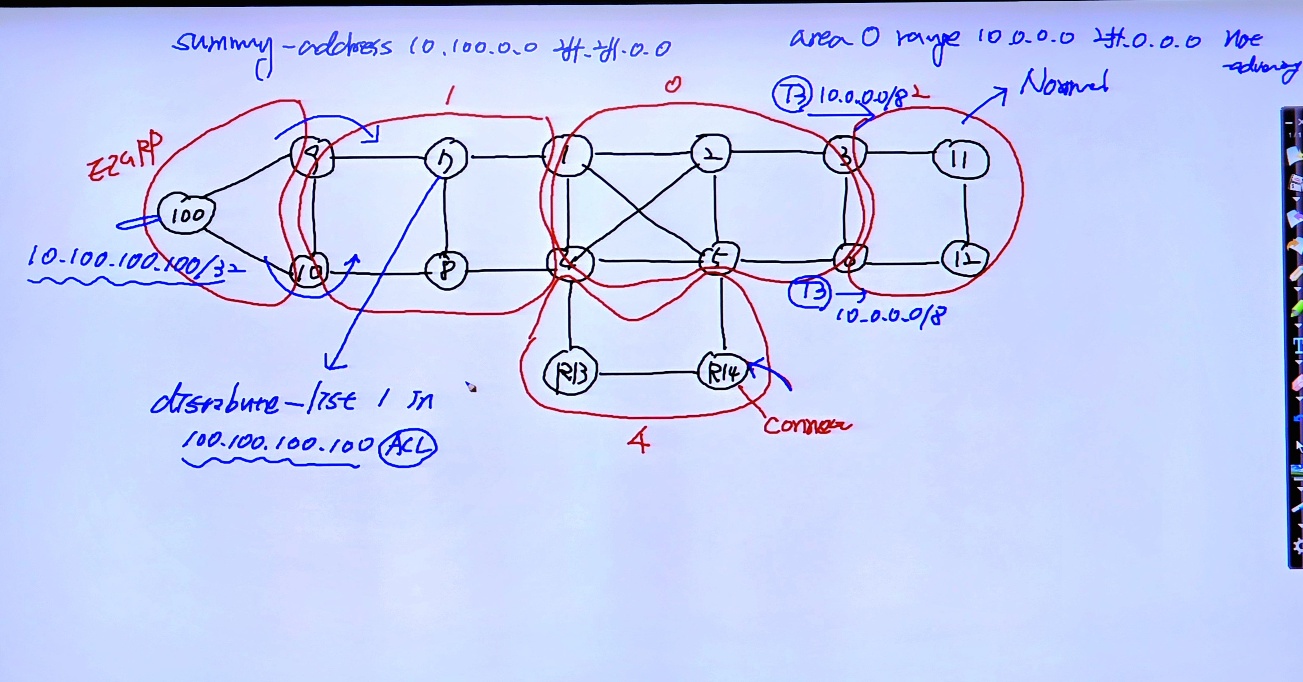 summry-address 10.100.0.0 255.255.0.0
area 0 range 10.0.0.0 255.0.0.0 not
T3 10.0.0.0/8 2
Normal
0
1
EIGRP
9
7
1
2
3
11
100
10.100.100.100/32
10
8
4
5
6
12
T3
10.0.0.0/8
R13
R14
distribute-list 1 in
100.100.100.100 ACL
4